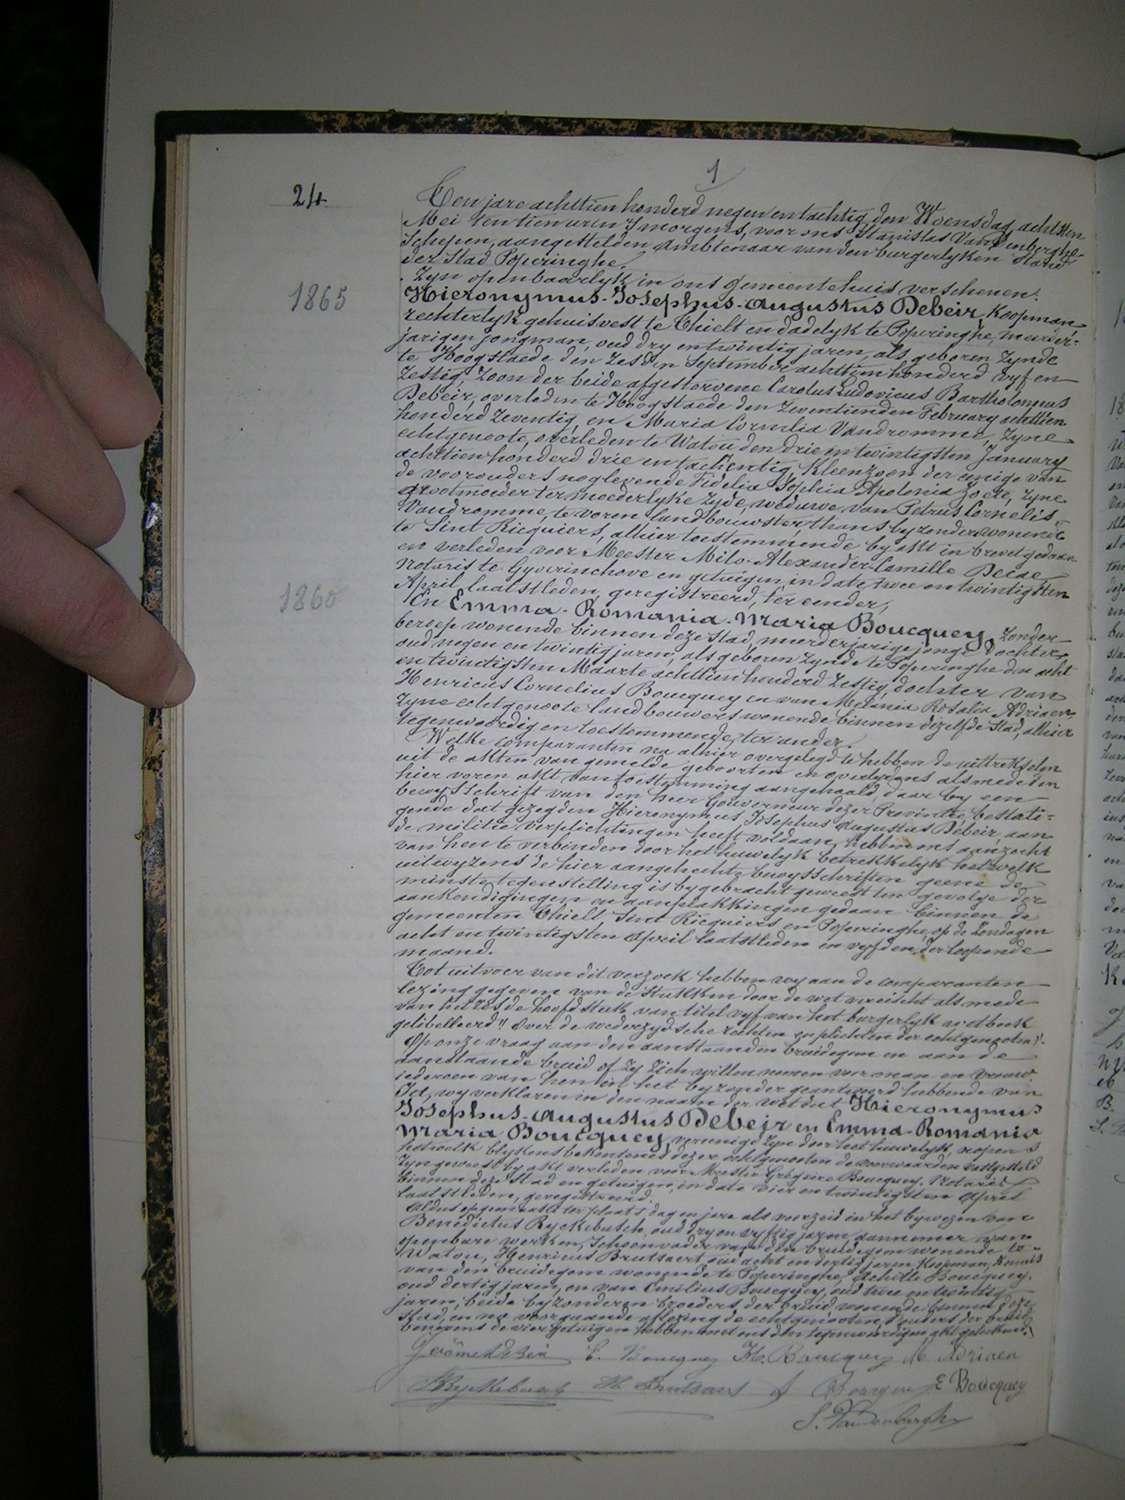 1
24
Ten jare achttien honderd negen en tachtig, den Woensdag achtsten
Mei ten tien uren 's morgens, voor ons Stanislas Vandenberghe
Schepen, aangestelden Ambtenaar van den burgerlyken Stand
der Stad Poperinghe.
Zyn openbaarlyk in ons gemeentehuis verschenen:
1865
Hieronymus-Josephus-Augustus Debeir, Koopman
rechterlyk gehuisvest te Thielt en dadelyk te Poperinghe, meerder-
jarigen jongman, oud dry en twintig jaren, als geboren zynde
te Hoogstaede den zesden September achttien honderd vyf en
zestig, zoon der beide afgestorvene Carolus Ludovicus Bartholomeus
Debeir, overleden te Hoogstaede den zeventienden February achttien
honderd zeventig, en Maria Cornelia Vandromme, zyne
echtgenoote, overleden te Watou den drie en twintigsten January
achttien honderd drie en tachtig, Kleenzoon der eenige van
de voorouders nog levende Fidelia Sophia Apolonia Zoete, zyne
grootmoeder ter moederlyke zyde, weduwe van Petrus Cornelis
Vandromme, te voren landbouwster thans byzondere wonende
te Sint Ricquiers, alhier toestemmende by akt in brevet gedaan
en verleden voor Meester Milo-Alexander-Camille Decae
notaris te Gyverinchove en getuigen, in date twee en twintigsten
April laatstleden, geregistreerd, ter eender,
1860
En Emma-Romania-Maria Boucquey, zonder
beroep wonende binnen deze stad, meerderjarige jonge dochter
oud negen en twintig jaren, als geboren zynde te Poperinghe den acht
en twintigsten Maarte achttien honderd zestig, dochter van
Henricus Cornelius Boucquey en van Melania Rosalia Adriaen
zyne echtgenoote landbouwers wonende binnen dezelfde stad, alhier
tegenwoordig en toestemmende, ter ander.
Welke comparanten na alhier overgelegd te hebben de uittrekselen
uit de akten van gemelde geboorten en overlydens alsmede den
hier voren akt van toestemming aangehaald daar by een
bewysschrift van den heer Gouverneur dezer Provintie bestati-
gende dat gezegden Hieronymus Josephus Augustus Debeir, aan
de militie verplichtingen heeft voldaan, hebben ons aanzocht
van hen te verbinden door het huwelyk betrekkelyk hetwelk
uitwyzens de hier aangehechte bewysschriften geene de
minste tegenstelling is bygebracht geweest ten gevolge der
aankondigingen en aanplakkingen gedaan binnen de
gemeenten Thielt Sint Ricquiers en Poperinghe, op de Zondagen
acht en twintigsten April laatstleden en vyfden der loopende
maand.
Tot uitvoer van dit verzoek hebben wy aan de comparanten
lezing gegeven van de stukken door de wet vereischt alsmede
van het zesde hoofdstuk van titel vyf van het burgerlyk wetboek
getitelleerd "Over de wederzydsche rechten en plichten der echtgenooten".
Op onze vraag aan den aanstaanden bruidegom en aan de
aanstaande bruid of zy zich willen nemen voor man en vrouw
iedereen van hen in het byzonder geantwoord hebbende van
Ja, wy verklaren in den naam der wet dat Hieronymus
Josephus-Augustus Debeir en Emma-Romania
Maria Boucquey, vereenigd zyn door het huwelyk nopens
hetwelk blykens bekentenis dezer echtgenooten de voorwaarden vastgesteld
zyn geweest by akt verleden voor Meester Grégoire Boucquey, Notaris
binnen deze stad en getuigen, in date vier en twintigsten April
laatstleden, geregistreerd.
Aldus opgemaakt ter plaats, dag en jare als voorzeid in het bywezen van
Benedictus Ryckebusch, oud dry en vyftig jaren, aannemer van
openbare werken, schoonvader van den bruidegom wonende te
Watou, Henricus Brutsaert oud acht en dertig jaren Koopman, Kennis
van den bruidegom wonende te Poperinghe, Achille Boucquey,
oud dertig jaren, en van Emilius Boucquey, oud twee en twintig
jaren, beide byzonderen broeders der bruid wonende binnen deze
stad, en na voorgaande aflezing de echtgenooten d'ouders der bruid
benevens de vier getuigen hebben met ons den tegenwoordigen akt geteekend.
Jerôme Debeir E. Boucquey H. Boucquey M Adriaen
B Ryckebusch H Brutsaert A Boucquey E Boucquey
S. Vandenberghe